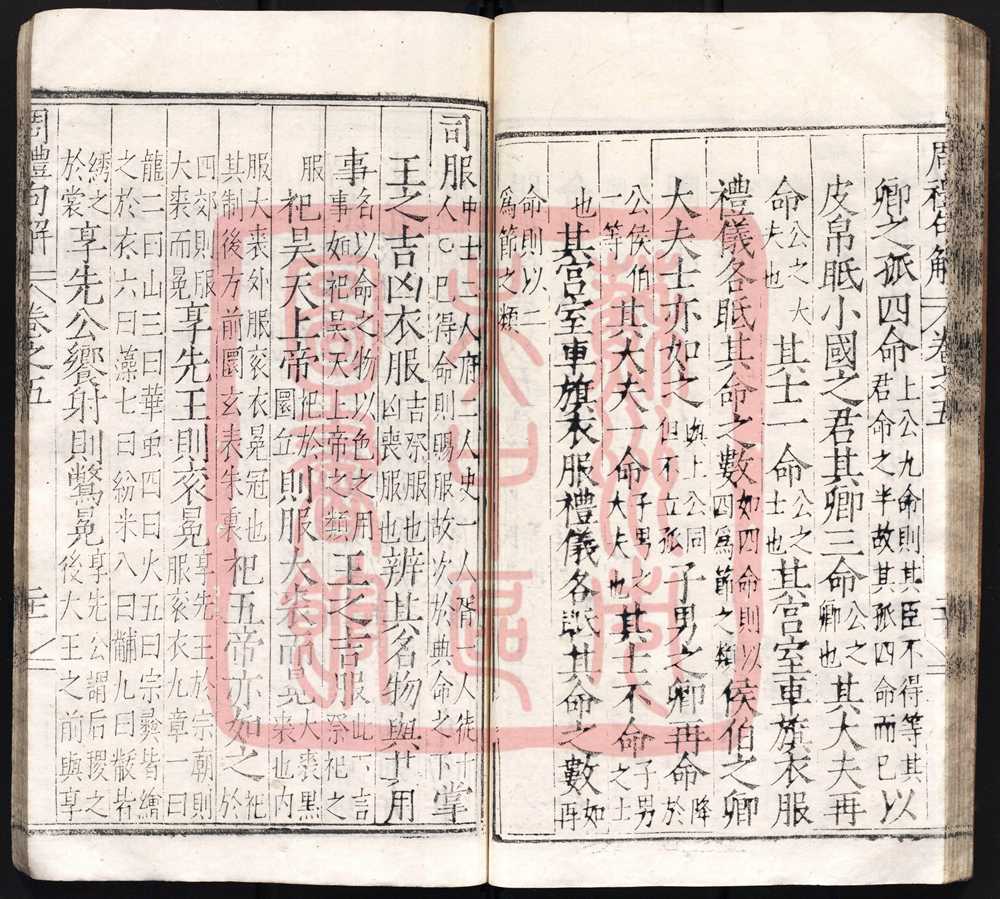 周禮句解 卷之五
卿之孤四命上公九命則其臣不得等其君命之半故其孤四命而已以
皮帛眂小國之君其卿三命公之卿也其大夫再
命公之大夫也其士一命公之士也其宮室車旗衣服
禮儀各眂其命之數如四命則以四爲節之類侯伯之卿
大夫士亦如之與上公同但不立孤子男之卿再命降於
公侯伯一等其大夫一命子男之大夫也其士不命子男之士
也其宮室車旗衣服禮儀各眂其命之數如再
命則以二爲節之類
司服中士二人府二人史一人胥一人徒十人○已得命則賜服故次於典命之下掌
王之吉凶衣服吉祭服也凶喪服也辨其名物與其用
事名以命之物以色之用事如祀昊天上帝之類王之吉服此六言祭祀之
服祀昊天上帝祀於圜丘則服大裘而冕大裘黑裘也内
服大裘外服衮衣冕冠也其制後方前圜玄表朱裏祀五帝亦如之祀於
四郊則服大裘而冕享先王則衮冕享先王於宗廟則服衮衣九章一曰
龍二曰山三曰華虫四曰火五曰宗彝皆繪之於衣六曰藻七曰紛米八曰黼九曰黻皆
綉之於裳享先公饗射則鷩冕享先公謂后稷之後大王之前與享
周禮句解 卷之五